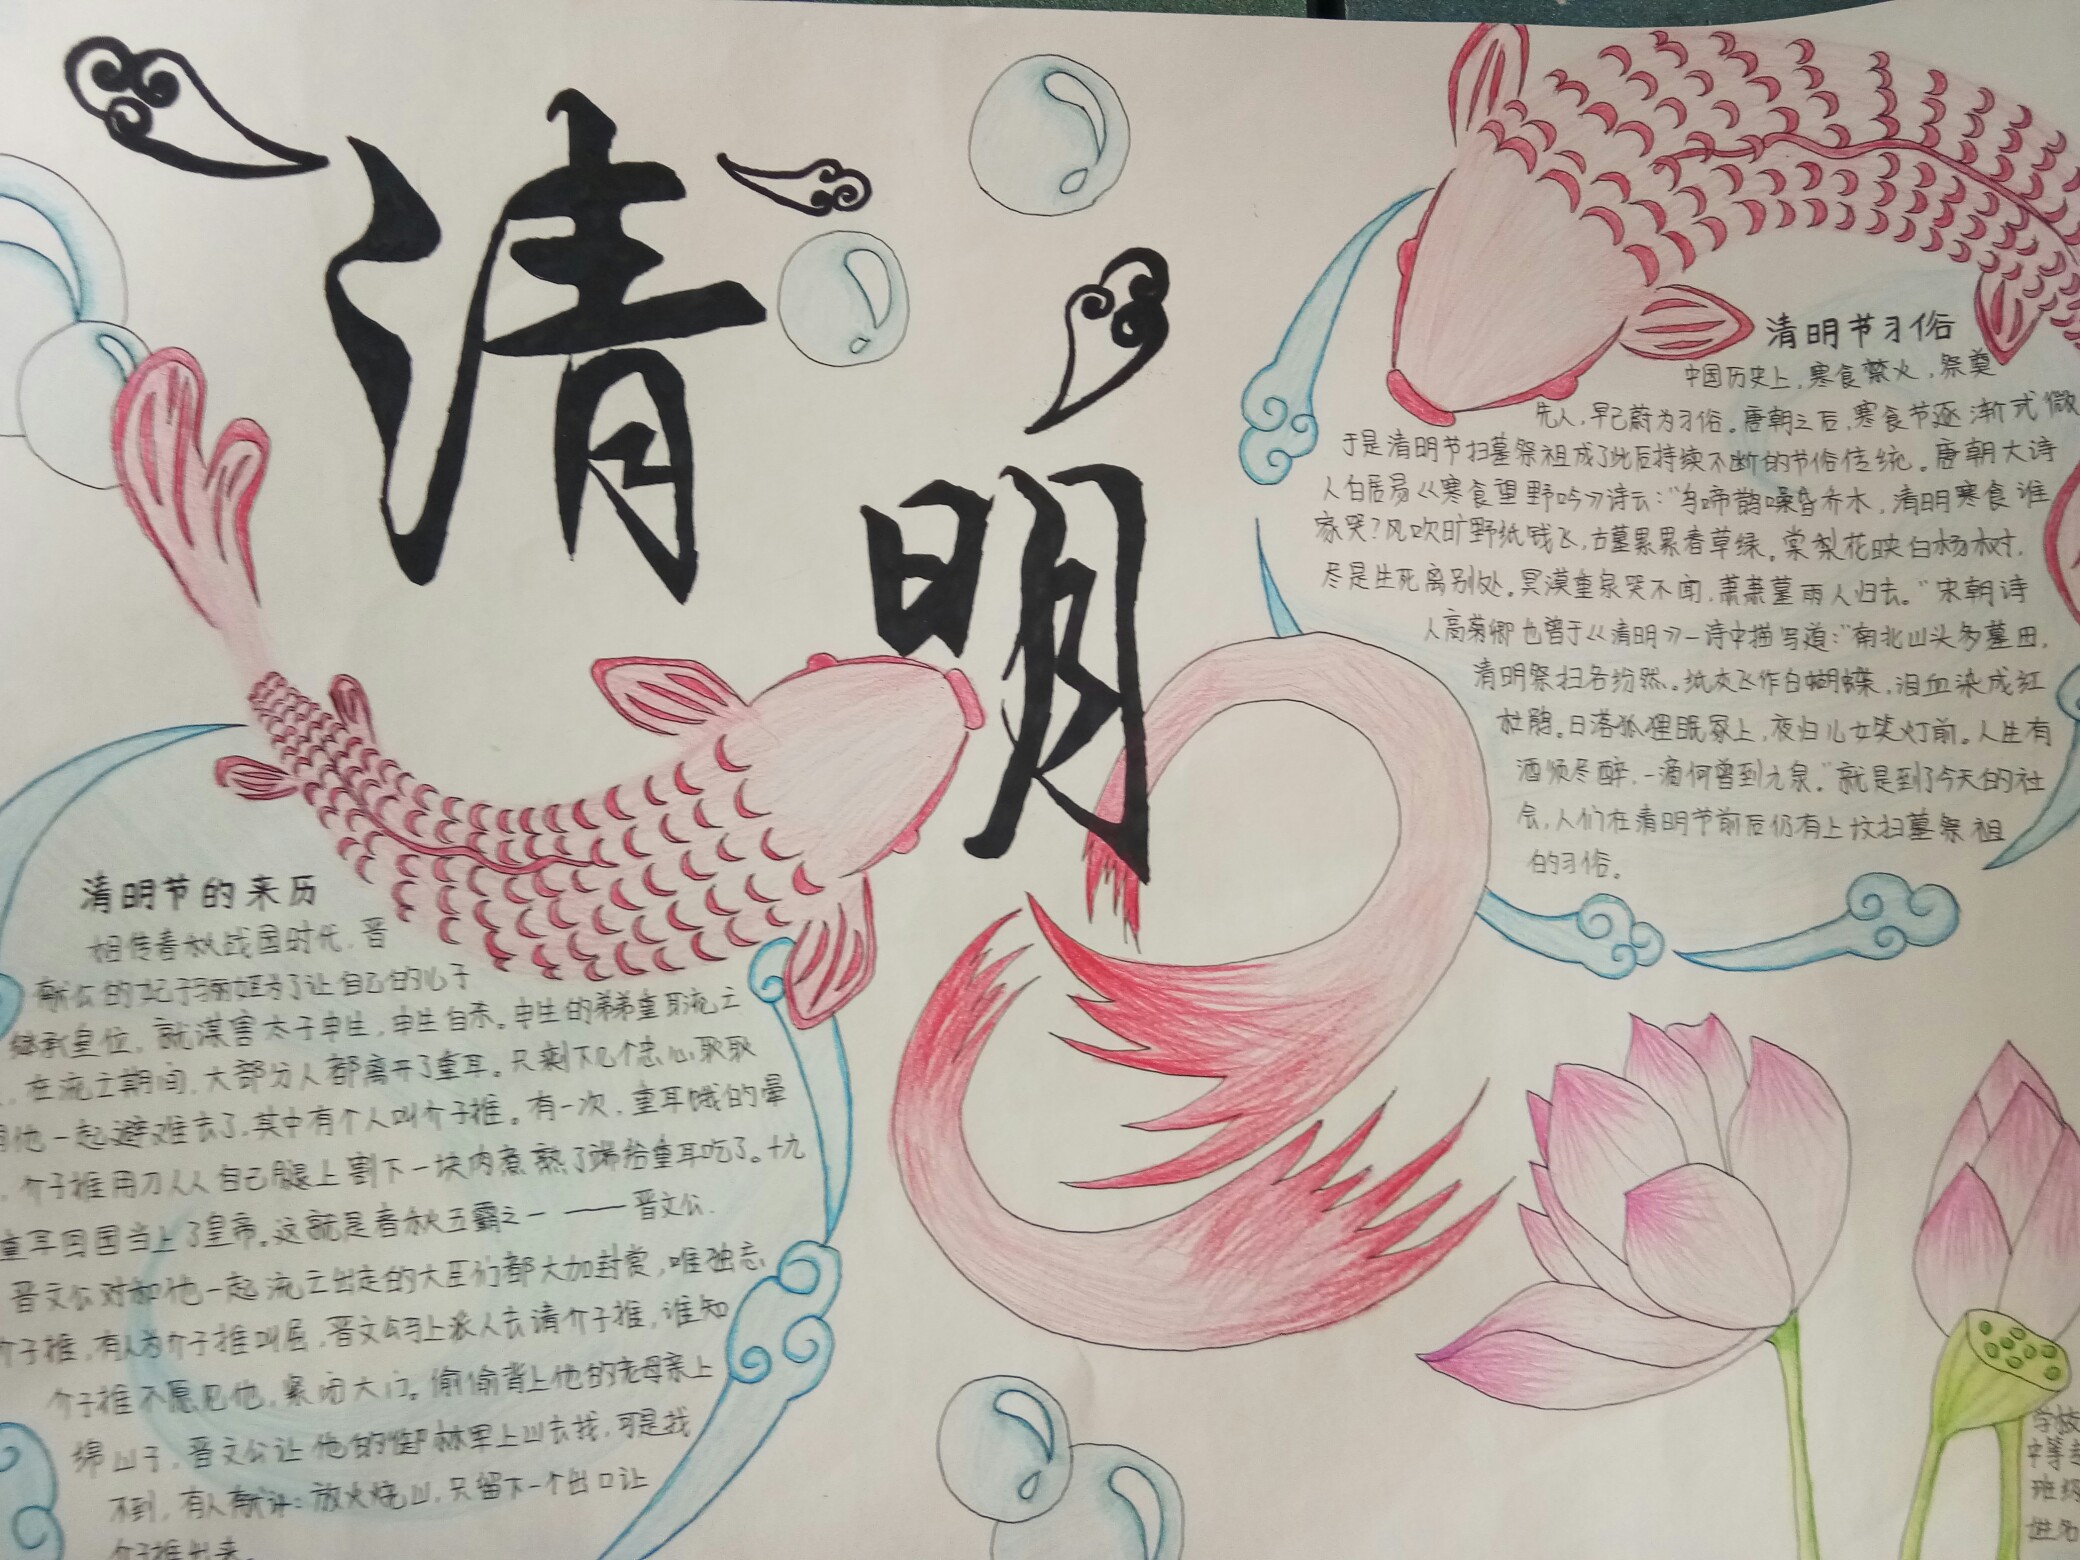 清
明
清明节的来历
相传春秋战国时代，晋
献公的妃子骊姬为了让自己的儿子
继承皇位，就谋害太子申生，申生自杀。申生的弟弟重耳流亡
，在流亡期间，大部分人都离开了重耳。只剩下几个忠心耿耿
他一起避难去了，其中有个人叫介子推。有一次，重耳饿的晕
，介子推用刀从自己腿上割下一块肉煮熟了端给重耳吃了。十九
重耳回国当上了皇帝。这就是春秋五霸之一 ——晋文公.
晋文公对和他一起流亡出走的大臣们都大加封赏，唯独忘
介子推，有人为介子推叫屈，晋文公马上派人去请介子推，谁知
介子推不愿见他，紧闭大门。偷偷背上他的老母亲上
绵山了，晋文公让他的御林军上山去找，可是找
不到，有人献计：放火烧山，只留下一个出口让
介子推出来。
清明节习俗
中国历史上，寒食禁火，祭奠
先人，早已蔚为习俗。唐朝之后，寒食节逐渐式微
于是清明节扫墓祭祖成了此后持续不断的节俗传统。唐朝大诗
人白居易《寒食望野吟》诗云：“乌啼鹊噪昏乔木，清明寒食谁
家哭？风吹旷野纸钱飞，古墓累累春草绿。棠梨花映白杨树，
尽是生死离别处。冥漠重泉哭不闻，萧萧墓雨人归去。”宋朝诗
人高菊卿也曾于《清明》一诗中描写道：“南北山头多墓田，
清明祭扫各纷然。纸灰飞作白蝴蝶，泪血染成红
杜鹃。日落狐狸眠冢上，夜归儿女笑灯前。人生有
酒须尽醉，一滴何曾到九泉。”就是到了今天的社
会，人们在清明节前后仍有上坟扫墓祭祖
的习俗。
学校
中等
班级
姓名